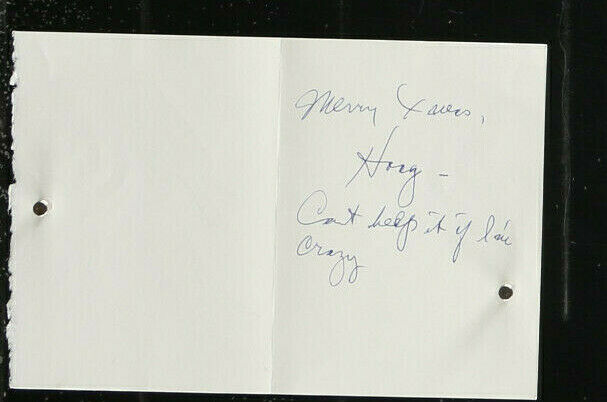 Merry Xmas,
Hoag –
Can't help it if I'm
crazy